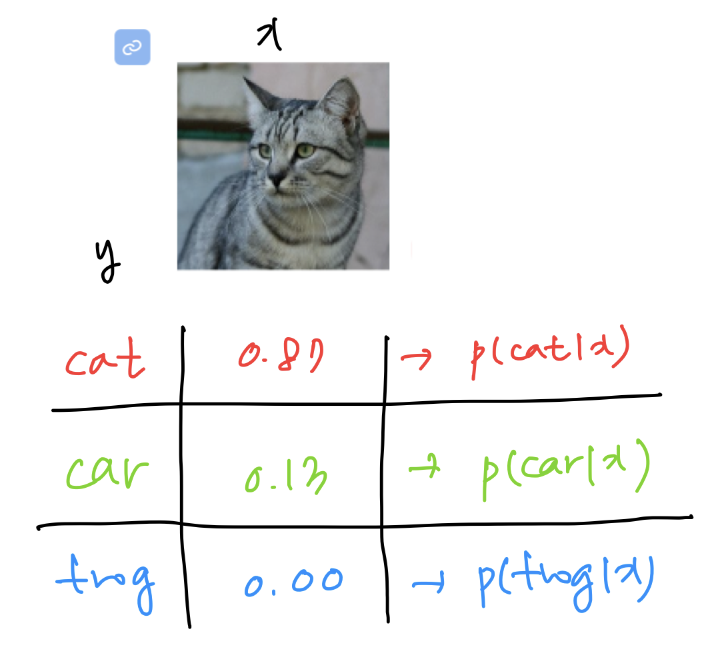 x
y
cat 0.87 → p(cat|x)
car 0.13 → p(car|x)
frog 0.00 → p(frog|x)